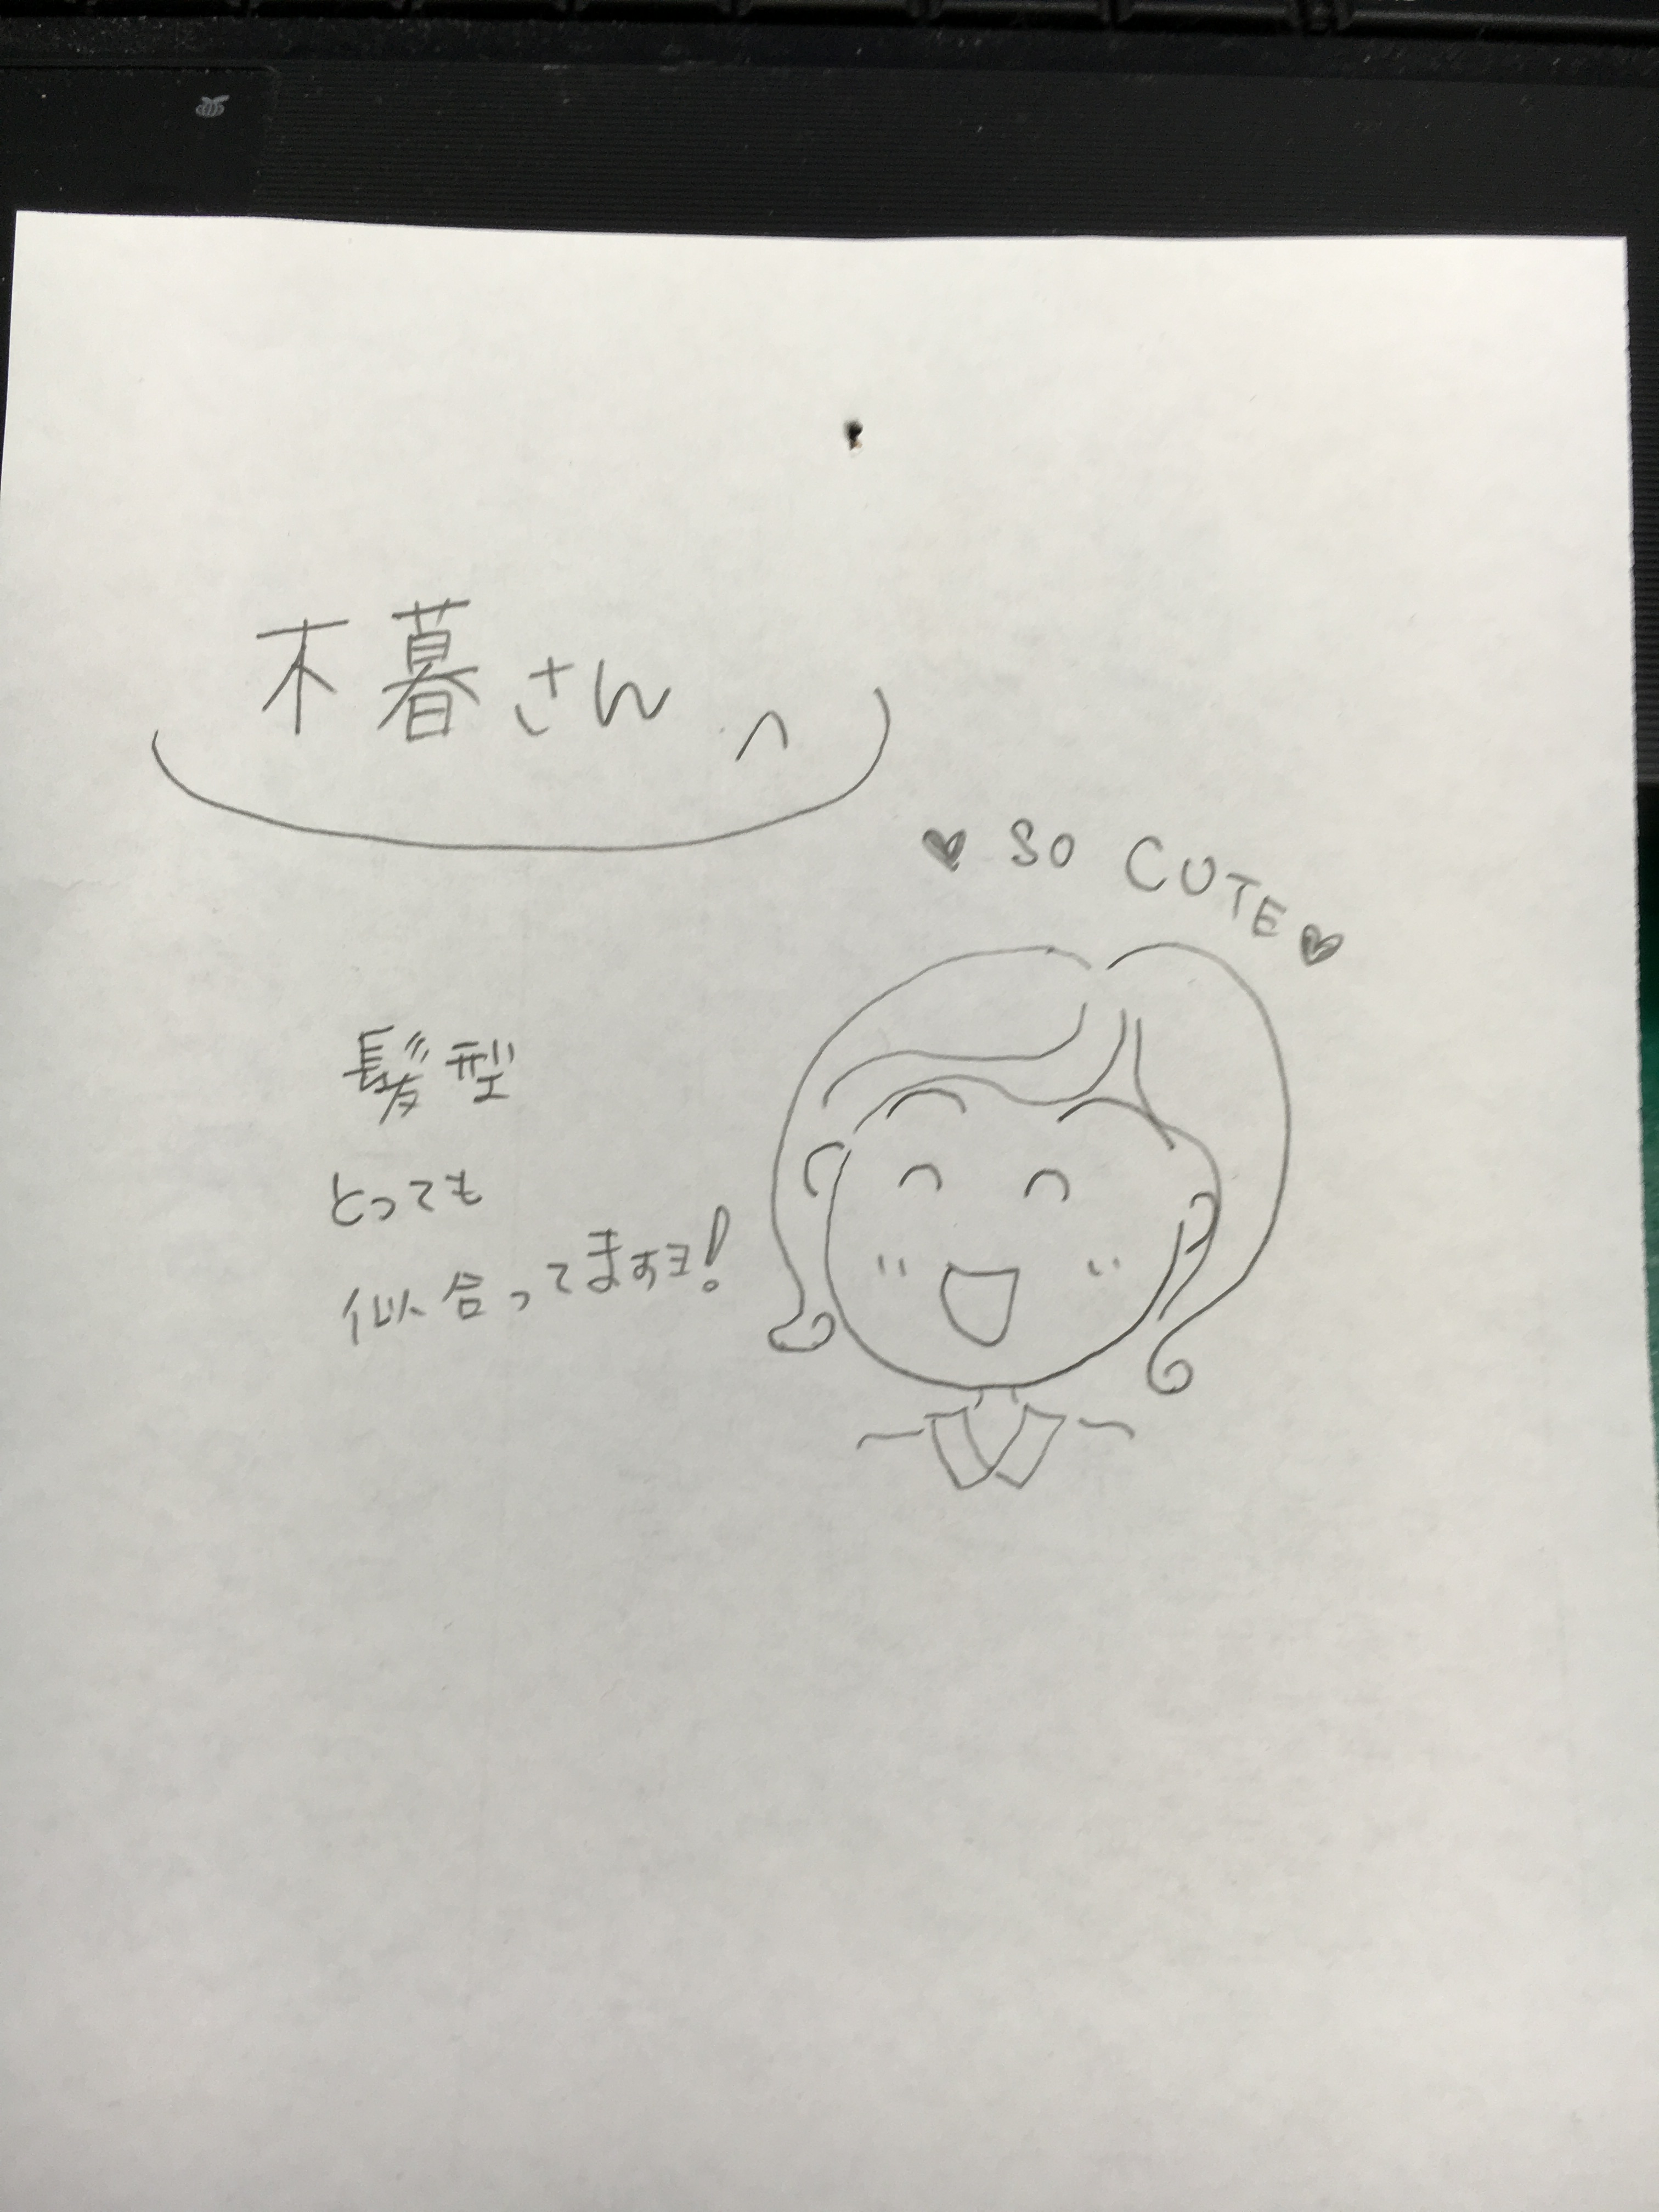 木暮さん へ
♥ SO CUTE ♥
髪型
とっても
似合ってますヨ!